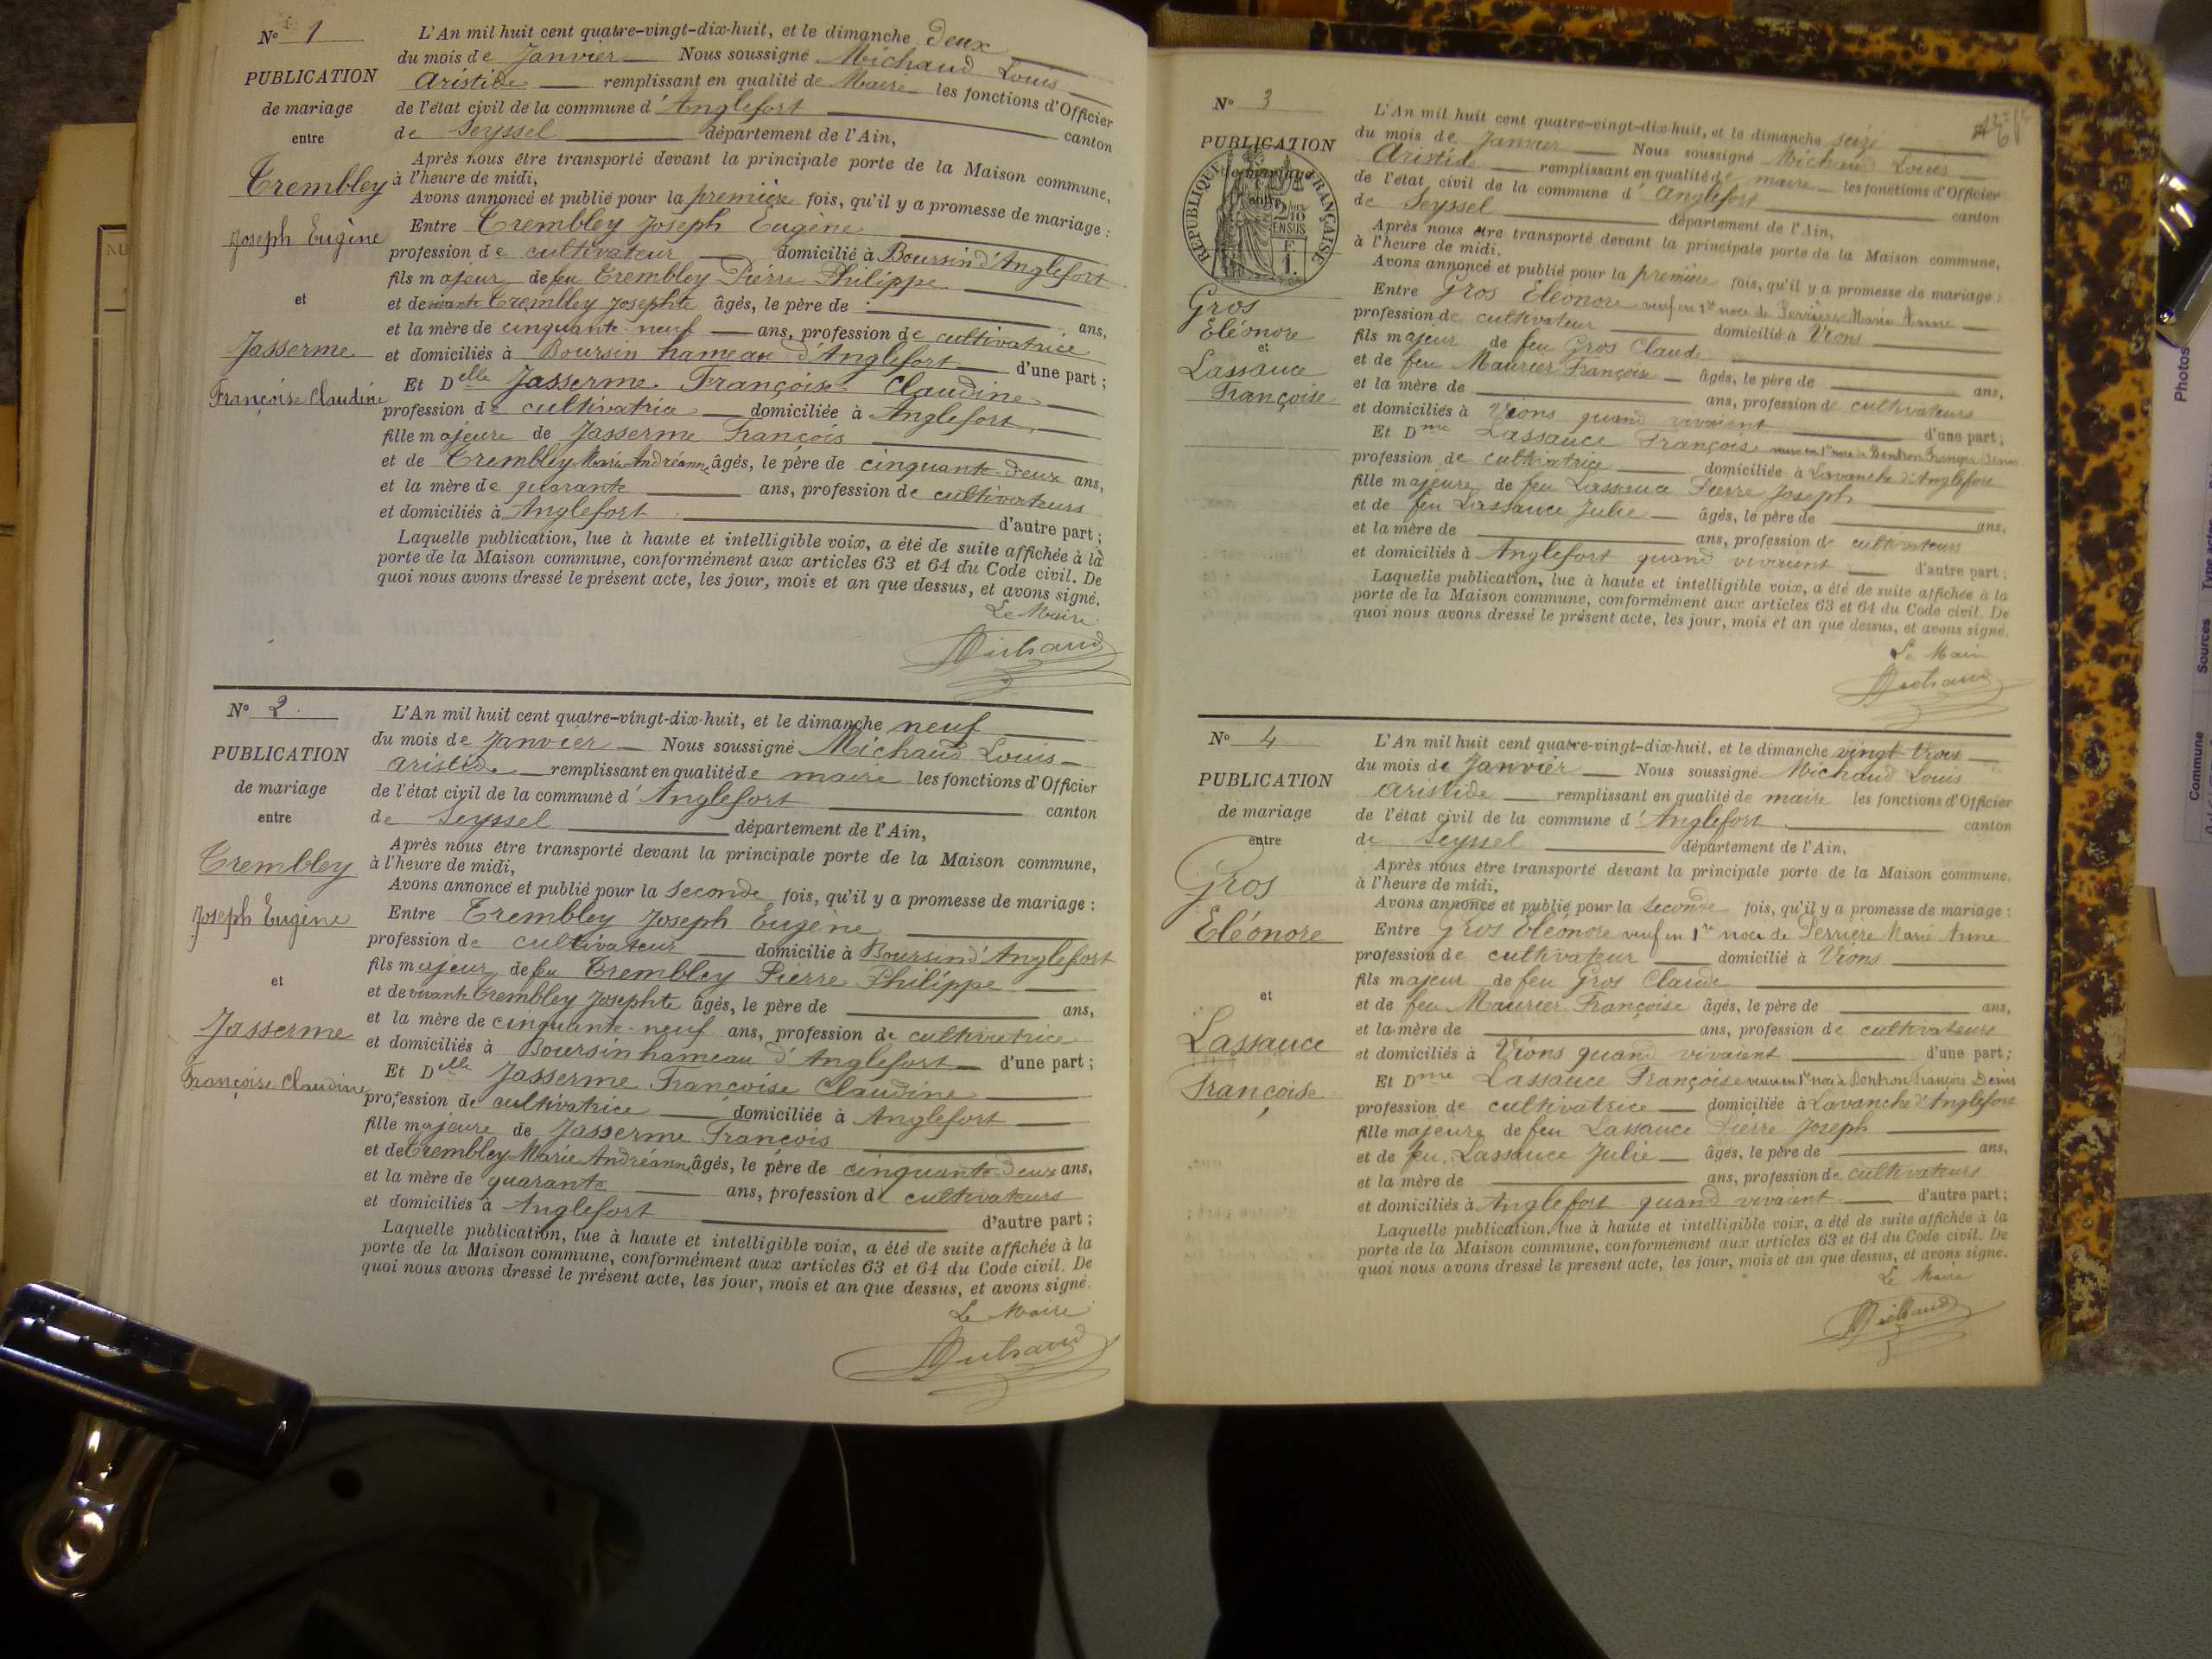 N° 1
PUBLICATION
de mariage
entre
Trembley
Joseph Eugène
et
Jasserme
Françoise Claudine
L'An mil huit cent quatre-vingt-dix-huit, et le dimanche deux
du mois de Janvier Nous soussigné Michaud Louis
Aristide remplissant en qualité de Maire les fonctions d'Officier
de l'état civil de la commune d'Anglefort canton
de Seyssel département de l'Ain,
Après nous être transporté devant la principale porte de la Maison commune,
à l'heure de midi,
Avons annoncé et publié pour la première fois, qu'il y a promesse de mariage :
Entre Trembley Joseph Eugène
profession de cultivateur domicilié à Boursin d'Anglefort
fils majeur de feu Trembley Pierre Philippe
et de vivante Trembley Josephte âgés, le père de ans,
et la mère de cinquante-neuf ans, profession de cultivatrice
et domiciliés à Boursin hameau d'Anglefort d'une part ;
Et Delle Jasserme Françoise Claudine
profession de cultivatrice domiciliée à Anglefort
fille majeure de Jasserme François
et de Trembley Marie Andréanne âgés, le père de cinquante-deux ans,
et la mère de quarante ans, profession de cultivateurs
et domiciliés à Anglefort d'autre part ;
Laquelle publication, lue à haute et intelligible voix, a été de suite affichée à la
porte de la Maison commune, conformément aux articles 63 et 64 du Code civil. De
quoi nous avons dressé le présent acte, les jour, mois et an que dessus, et avons signé.
Le Maire
Michaud
N° 2
PUBLICATION
de mariage
entre
Trembley
Joseph Eugène
et
Jasserme
Françoise Claudine
L'An mil huit cent quatre-vingt-dix-huit, et le dimanche neuf
du mois de Janvier Nous soussigné Michaud Louis
Aristide remplissant en qualité de maire les fonctions d'Officier
de l'état civil de la commune d'Anglefort canton
de Seyssel département de l'Ain,
Après nous être transporté devant la principale porte de la Maison commune,
à l'heure de midi,
Avons annoncé et publié pour la seconde fois, qu'il y a promesse de mariage :
Entre Trembley Joseph Eugène
profession de cultivateur domicilié à Boursin d'Anglefort
fils majeur de feu Trembley Pierre Philippe
et de vivante Trembley Josephte âgés, le père de ans,
et la mère de cinquante-neuf ans, profession de cultivatrice
et domiciliés à Boursin hameau d'Anglefort d'une part ;
Et Delle Jasserme Françoise Claudine
profession de cultivatrice domiciliée à Anglefort
fille majeure de Jasserme François
et de Trembley Marie Andréanne âgés, le père de cinquante-deux ans,
et la mère de quarante ans, profession de cultivateurs
et domiciliés à Anglefort d'autre part ;
Laquelle publication, lue à haute et intelligible voix, a été de suite affichée à la
porte de la Maison commune, conformément aux articles 63 et 64 du Code civil. De
quoi nous avons dressé le présent acte, les jour, mois et an que dessus, et avons signé.
Le Maire
Michaud
N° 3
PUBLICATION
de mariage
entre
RÉPUBLIQUE FRANÇAISE
2/10
EN SUS
F.
1.
Gros
Eléonore
et
Lassauce
Françoise
L'An mil huit cent quatre-vingt-dix-huit, et le dimanche seize
du mois de Janvier Nous soussigné Michaud Louis
Aristide remplissant en qualité de maire les fonctions d'Officier
de l'état civil de la commune d'Anglefort canton
de Seyssel département de l'Ain,
Après nous être transporté devant la principale porte de la Maison commune,
à l'heure de midi,
Avons annoncé et publié pour la première fois, qu'il y a promesse de mariage :
Entre Gros Eléonore veuf en 1re noce de Perrière Marie Anne
profession de cultivateur domicilié à Vions
fils majeur de feu Gros Claude
et de feu Maurier Françoise âgés, le père de ans,
et la mère de ans, profession de cultivateurs
et domiciliés à Vions quand vivaient d'une part ;
Et Dme Lassauce Françoise veuve en 1re noce de Bontron François Denis
profession de cultivatrice domiciliée à Lavanche d'Anglefort
fille majeure de feu Lassauce Pierre Joseph
et de feu Lassauce Julie âgés, le père de ans,
et la mère de ans, profession de cultivateurs
et domiciliés à Anglefort quand vivaient d'autre part ;
Laquelle publication, lue à haute et intelligible voix, a été de suite affichée à la
porte de la Maison commune, conformément aux articles 63 et 64 du Code civil. De
quoi nous avons dressé le présent acte, les jour, mois et an que dessus, et avons signé.
Le Maire
Michaud
N° 4
PUBLICATION
de mariage
entre
Gros
Eléonore
et
Lassauce
Françoise
L'An mil huit cent quatre-vingt-dix-huit, et le dimanche vingt-trois
du mois de Janvier Nous soussigné Michaud Louis
Aristide remplissant en qualité de maire les fonctions d'Officier
de l'état civil de la commune d'Anglefort canton
de Seyssel département de l'Ain,
Après nous être transporté devant la principale porte de la Maison commune,
à l'heure de midi,
Avons annoncé et publié pour la seconde fois, qu'il y a promesse de mariage :
Entre Gros Eléonore veuf en 1re noce de Perrière Marie Anne
profession de cultivateur domicilié à Vions
fils majeur de feu Gros Claude
et de feu Maurier Françoise âgés, le père de ans,
et la mère de ans, profession de cultivateurs
et domiciliés à Vions quand vivaient d'une part ;
Et Dme Lassauce Françoise veuve en 1re noce de Bontron François Denis
profession de cultivatrice domiciliée à Lavanche d'Anglefort
fille majeure de feu Lassauce Pierre Joseph
et de feu Lassauce Julie âgés, le père de ans,
et la mère de ans, profession de cultivateurs
et domiciliés à Anglefort quand vivaient d'autre part ;
Laquelle publication, lue à haute et intelligible voix, a été de suite affichée à la
porte de la Maison commune, conformément aux articles 63 et 64 du Code civil. De
quoi nous avons dressé le présent acte, les jour, mois et an que dessus, et avons signé.
Le Maire
Michaud
Photos
Sources
Commune